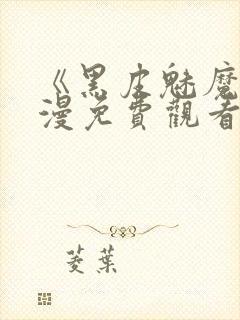 《黑皮魅魔
漫免費觀看
菱葉